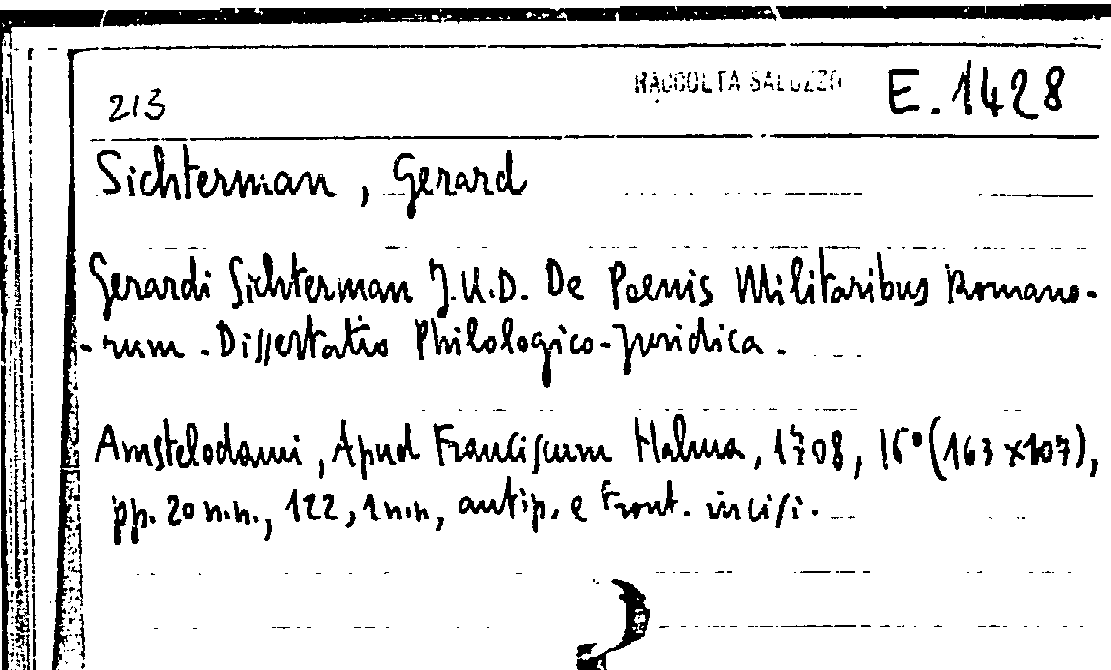 213 RACCOLTA SALUZZO E.1428
Sichterman, Gerard
Gerardi Sichterman J.U.D. De Poenis Militaribus Romano-
-rum. Dissertatio Philologico-Juridica.
Amstelodami, Apud Franciscum Halma, 1708, 16° (163x107),
pp. 20 n.n., 122, 1 n.n., antip. e Front. incisi.